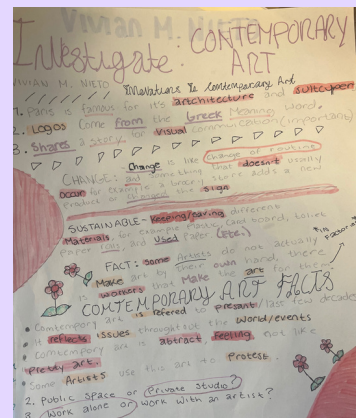 Vivian M. Nieto
Investigate: CONTEMPORARY
ART
VIVIAN M. NIETO
Innovations In Contemporary Art
1. Paris is famous for it's artchitecture and
2. Logos come from the Greek Meaning word.
3. Shares a story. for Visual communication (important)
Change is like Change of routine
CHANGE: and something that doesn't usually
occur for example a brewery store adds a new
product or changed the sign
SUSTAINABLE- Keeping/caring different
Materials, for example Plastic, Cardboard, toilet
Paper rolls, and Used Paper (Etc.)
FACT: Some Artists do not actually
Make art by there own hand, there
is workers that Make the art for them
*in Factories
CONTEMPORARY ART FACTS
Comtempory art is refered to present/last few decades
it reflects issues throughout the world/events
Comtempory art is abtract, feeling not like
Pretty art.
Some Artists use this art to Protest.
2. Public Space or Private studio?
3. Work alone or work with an artist?